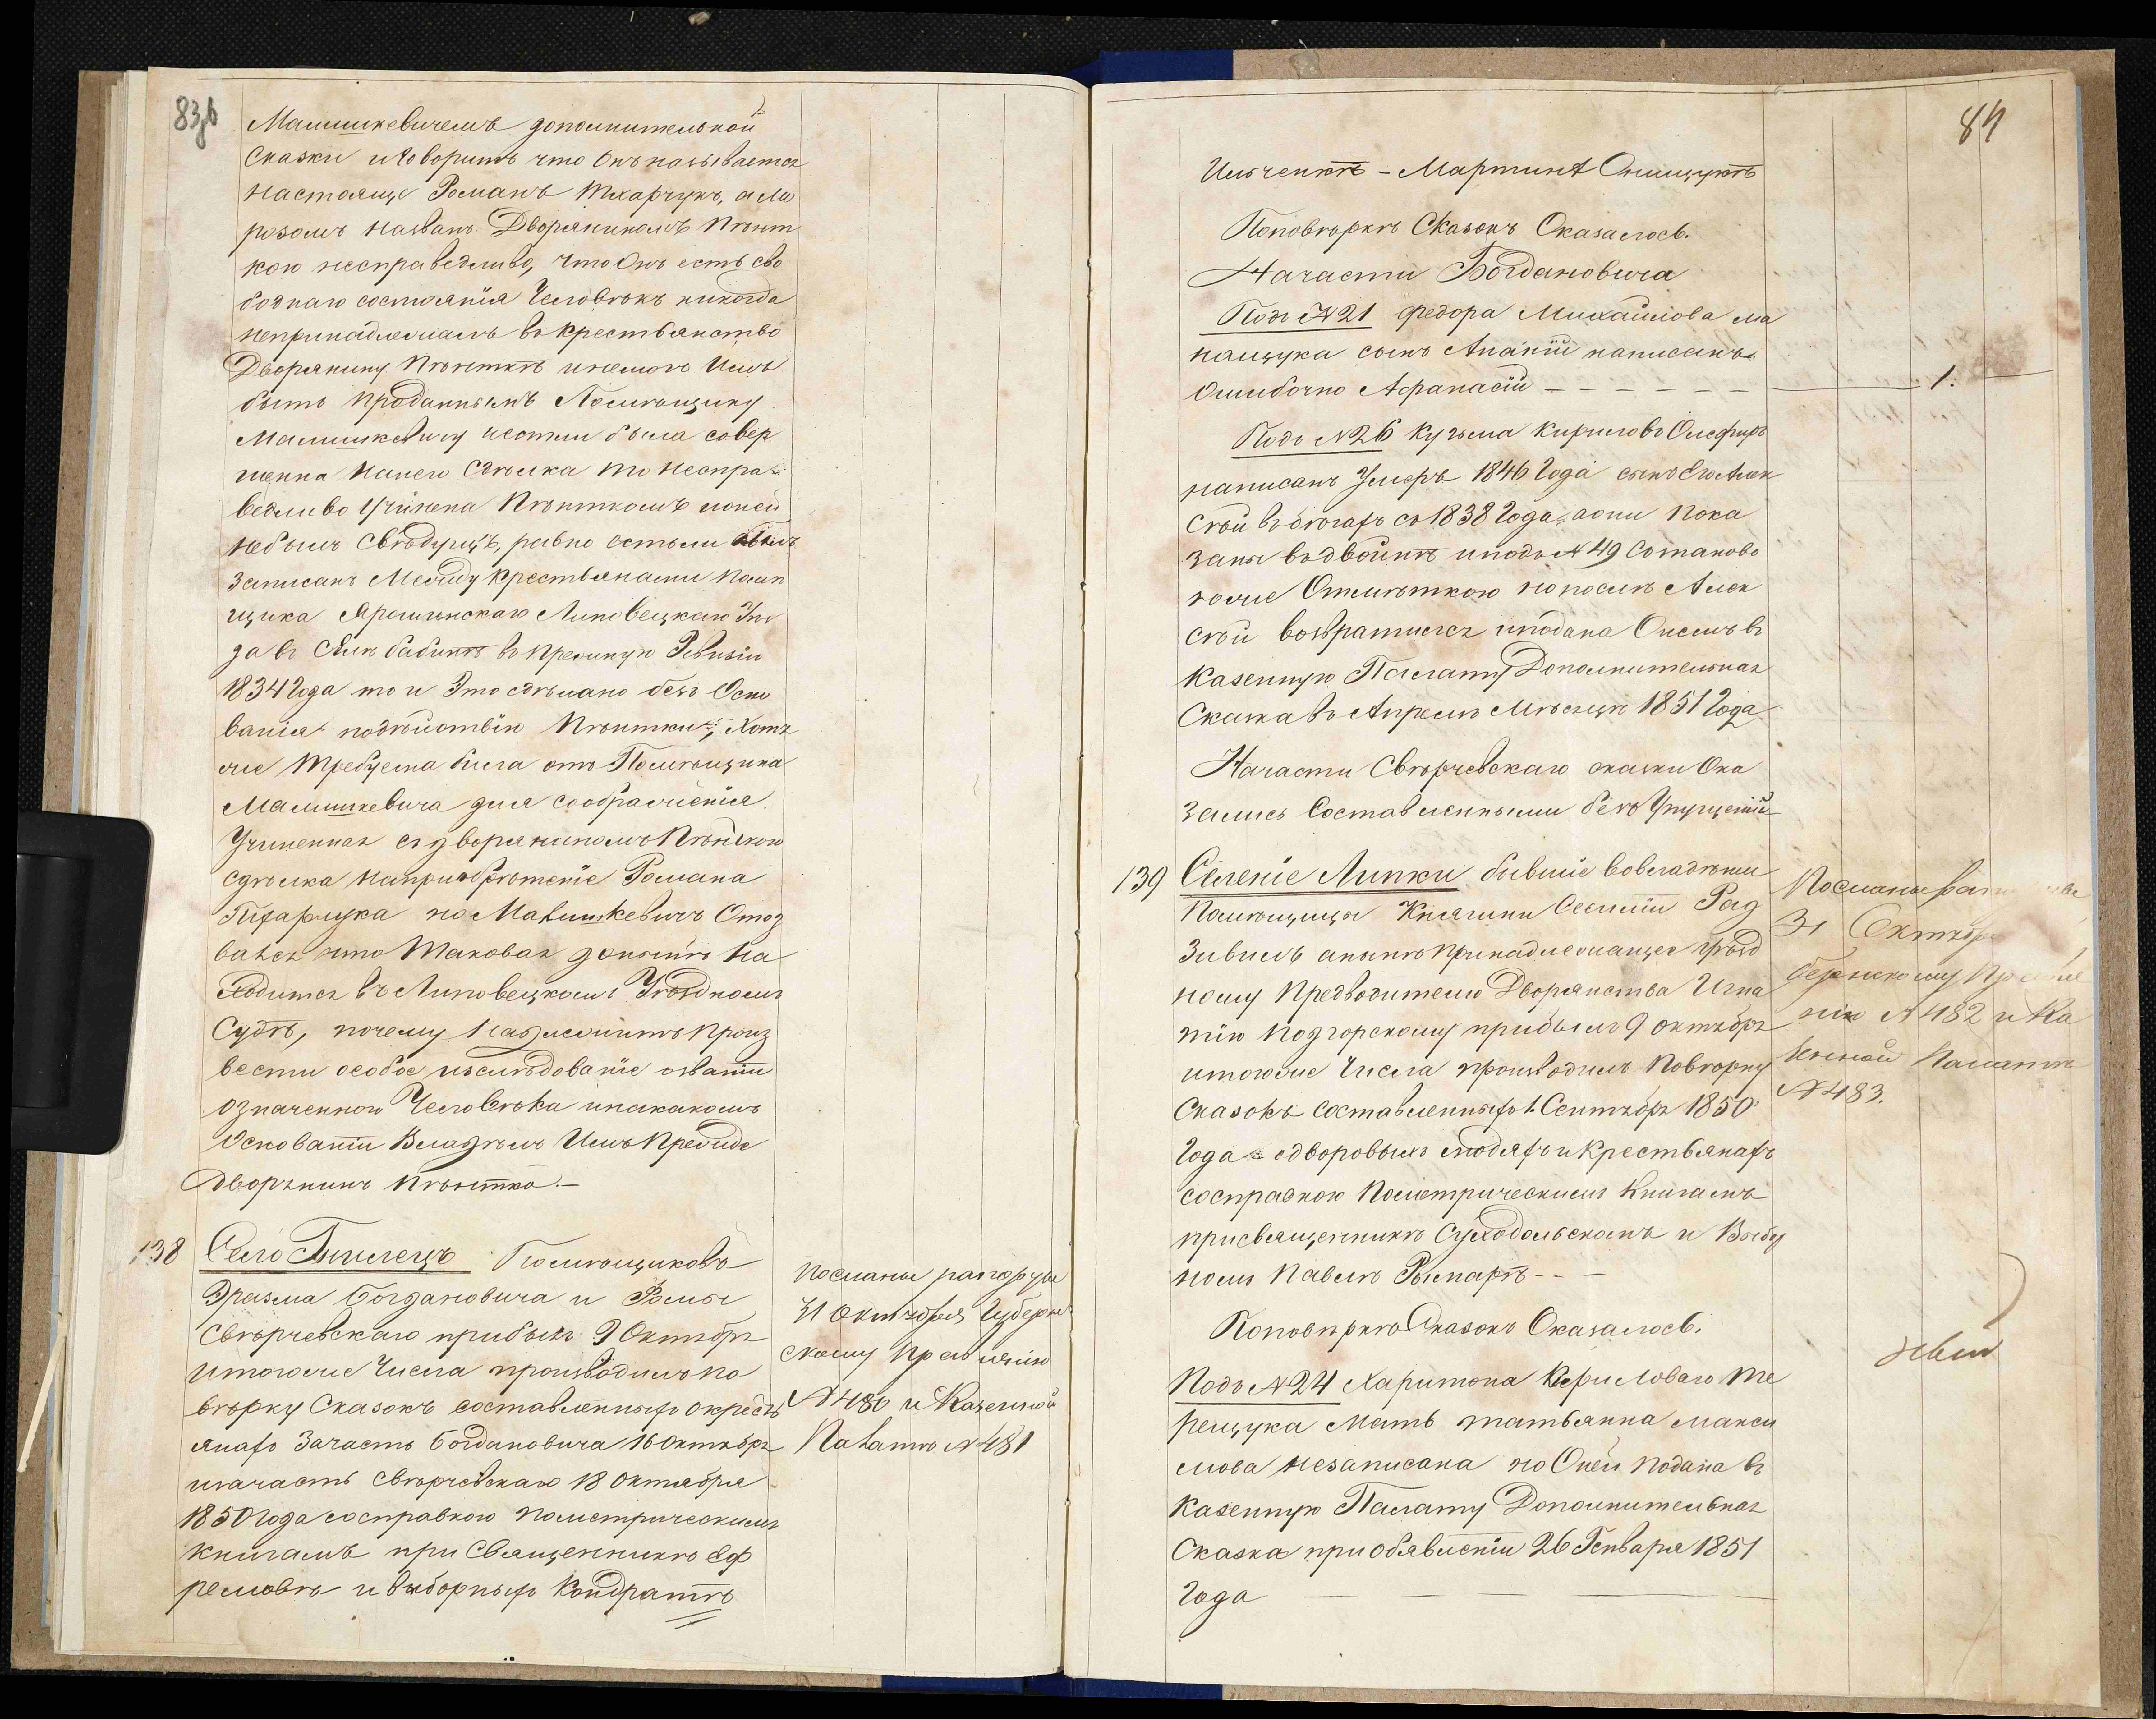 83,б
Малишкевичемъ дополнительной
сказки и говоритъ что Онъ называется
настояще Романъ Тхарчукъ, а Мо
розомъ названъ Дворяниномъ Пѣнт
кою несправедливо, что Онъ есть сво
боднаго состоянія Человѣкъ никогда
непринадлежалъ въ крестьянство
Дворянину Пѣнткѣ и немогъ Имъ
быть проданнымъ Помѣщику
Малишкевичу и если была совер
шенна нанего Сдѣлка то неспра
ведливо учинена Пѣнткомъ
небылъ Свѣдущъ, равно естьли былъ
записанъ Между крестьянами Помѣ
щика Ярошинскаго Липовецкаго Уѣз
да въ Селѣ бабинѣ въ прежную Ревизію
1834 Года то и Это сдѣлано безъ Осно
ванія по дѣйствію Пѣнтки; Хотя
же требуема была отъ Помѣщика
Малишкевича для соображенія
Учиненная съ дворяниномъ Пѣнткою
сдѣлка напріобрѣтеніе Романа
Тхарчука но Малишкевичъ Отоз
вался что таковая донынѣ на
ходится въ Липовецкомъ Уѣздномъ
Судѣ, почему Надлежитъ произ
вести особое изслѣдованіе озваніи
означенного Человѣка инакакомъ
Основаніи Владѣлъ Имъ прежде
Дворянинъ Пѣнтко.—
138 Село Гнилецъ Помѣщиковъ
Эразма Богдановича и Ромы
Свѣрчевскаго прибылъ 9 Октября
итогоже Числа производилъ по
вѣрку Сказокъ составленныхъ окресть
янахъ Зачасть Богдановича 16 октября
изачасть Свѣрчевскаго 18 октября
1850 года сосправкою пометрическимъ
книгамъ при Священникѣ Еф
ремовѣ и выборныхъ Кондратѣ
Посланы рапорты
31 Октября Губерн
скому Правленію
№ 480 и Казенной
Палатѣ № 481
84
Ильченкѣ - Мартинѣ Онищукѣ
Поповѣркѣ Сказокъ Оказалось.
Начасти Богдановича
Подъ № 21 федора Михайлова ма
нащука сынъ Ананій написанъ
Ошибочно Афанасій — — — — — — 1.
Подъ № 26 Кузьма Кириловъ Олефиръ
написанъ Умеръ 1846 Года сынъ Его Алек
сѣй вбѣгахъ съ 1838 Года, аони пока
заны въдвойнѣ иподъ № 49 Сотаково
юже Отмѣткою нопослѣ Алек
сѣй возвратился иподана Онемъ въ
Казенную Палату Дополнительная
Сказка въ Апрелѣ Мѣсяцѣ 1851 Года
Начасти Свѣрчевскаго сказки Ока
зались Составленными безъ Упущеній
139 Селеніе Липки бывшіе вовладѣніи
Помѣщицы Княгини Рад
зивилъ анынѣ принадлежащее Уѣзд
ному Предводителю Дворянства Игна
тію Подгорскому прибылъ 9 октября
итогоже Числа производилъ Повѣрку
Сказокъ составленныхъ 1 Сентября 1850
Года одворовыхъ людяхъ и Крестьянахъ
сосправкою Пометрическимъ Книгамъ
присвященникѣ Суходольскомъ и Выбор
номъ Павелѣ Рымарѣ - - —
Посланы рапорты
31 Октября
бернскому Правле
нію № 482 и Ка
зенной Палатѣ
№ 483.
Поповѣркѣ Сказокъ Оказалось.
Подъ № 24 Харитона Кириловаго Те
рещука Мать татьянна Макси
мова незаписана но Оней подана въ
Казенную Палату Дополнительная
Сказка приобявленіи 26 Генваря 1851
Года